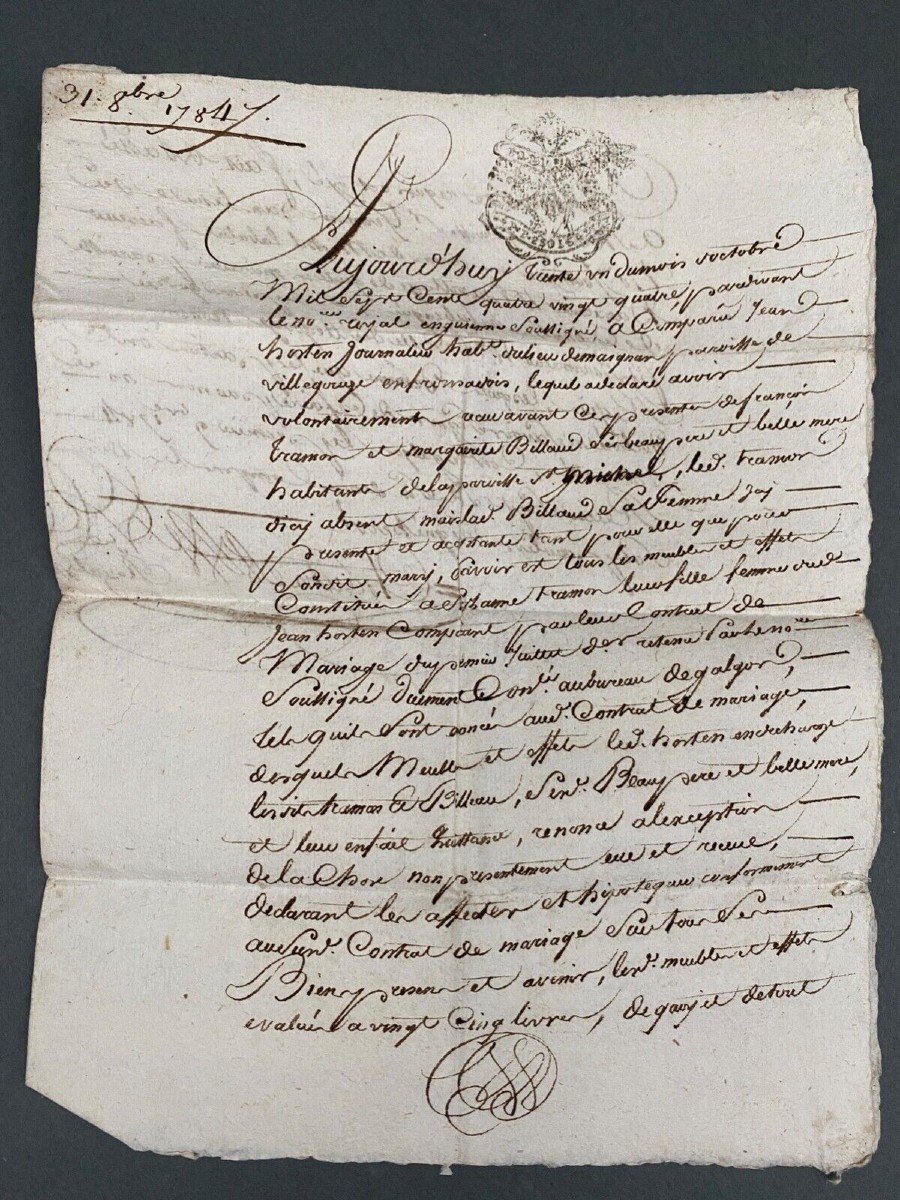 31. 8bre 1784.
Aujourdhuy trente un du mois doctobre
Mil Sept Cent quatre vingt quatre, pardevant
le nore royal en guienne Soussigné a Comparu Jean
horten Journalier habt. du lieu de maignan paroisse de
villegouge en fronsadois, lequel a declaré avoir
volontairement receu avant ces presentes de françois
tramon et marguerite Billaud Ses beaupere et belle mere
habitants de la paroisse St. Michel, led. tramon
dicy absent mais lad. Billaud Sa femme icy
presente et acceptante tant pour elle que pour
Sondit mary, Sçavoir est tous les meubles et effets
Constitués a tramon leur fille femme dud.
Jean horten Comparant par leur Contrat de
Mariage du premier Juillet der. retenu par le nore
Soussigné duement Conlé au bureau de galgon,
tels quils Sont enoncés aud. Contrat de mariage,
desquels Meubles et effets led. horten en decharge
lesdits tramon & Billaud, Sesd. Beaupere et belle mere,
et leur en fait quittance, renonce a lexception
de la Chose non presentement eue et receue,
declarant les affecter et hipotequer conformement
au Susd. Contrat de mariage Sur tous Ses
Biens presens et avenir, lesd. meubles et effets
evalués a vingt Cinq livres, de quoy et de tout